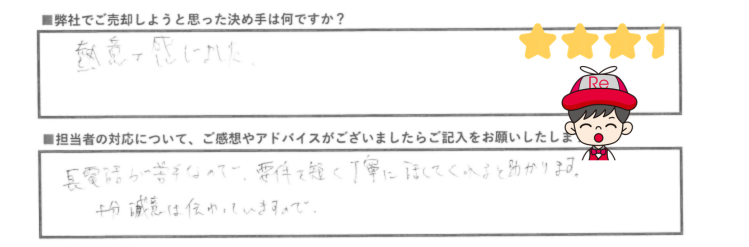 ■弊社でご売却しようと思った決め手は何ですか？
熱意を感じました。
Re
■担当者の対応について、ご感想やアドバイスがございましたらご記入をお願いしたしま
長電話が苦手なので、要件を短く丁寧に話してくれると助かります。
十分誠意は伝わっていますので。